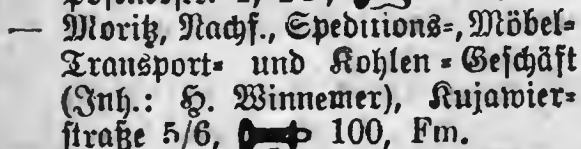 — Moritz, Nachf., Speditions=, Möbel=
Transport= und Kohlen = Geschäft
(Inh.: H. Winnemer), Kujawier=
straße 5/6, 100, Fm.